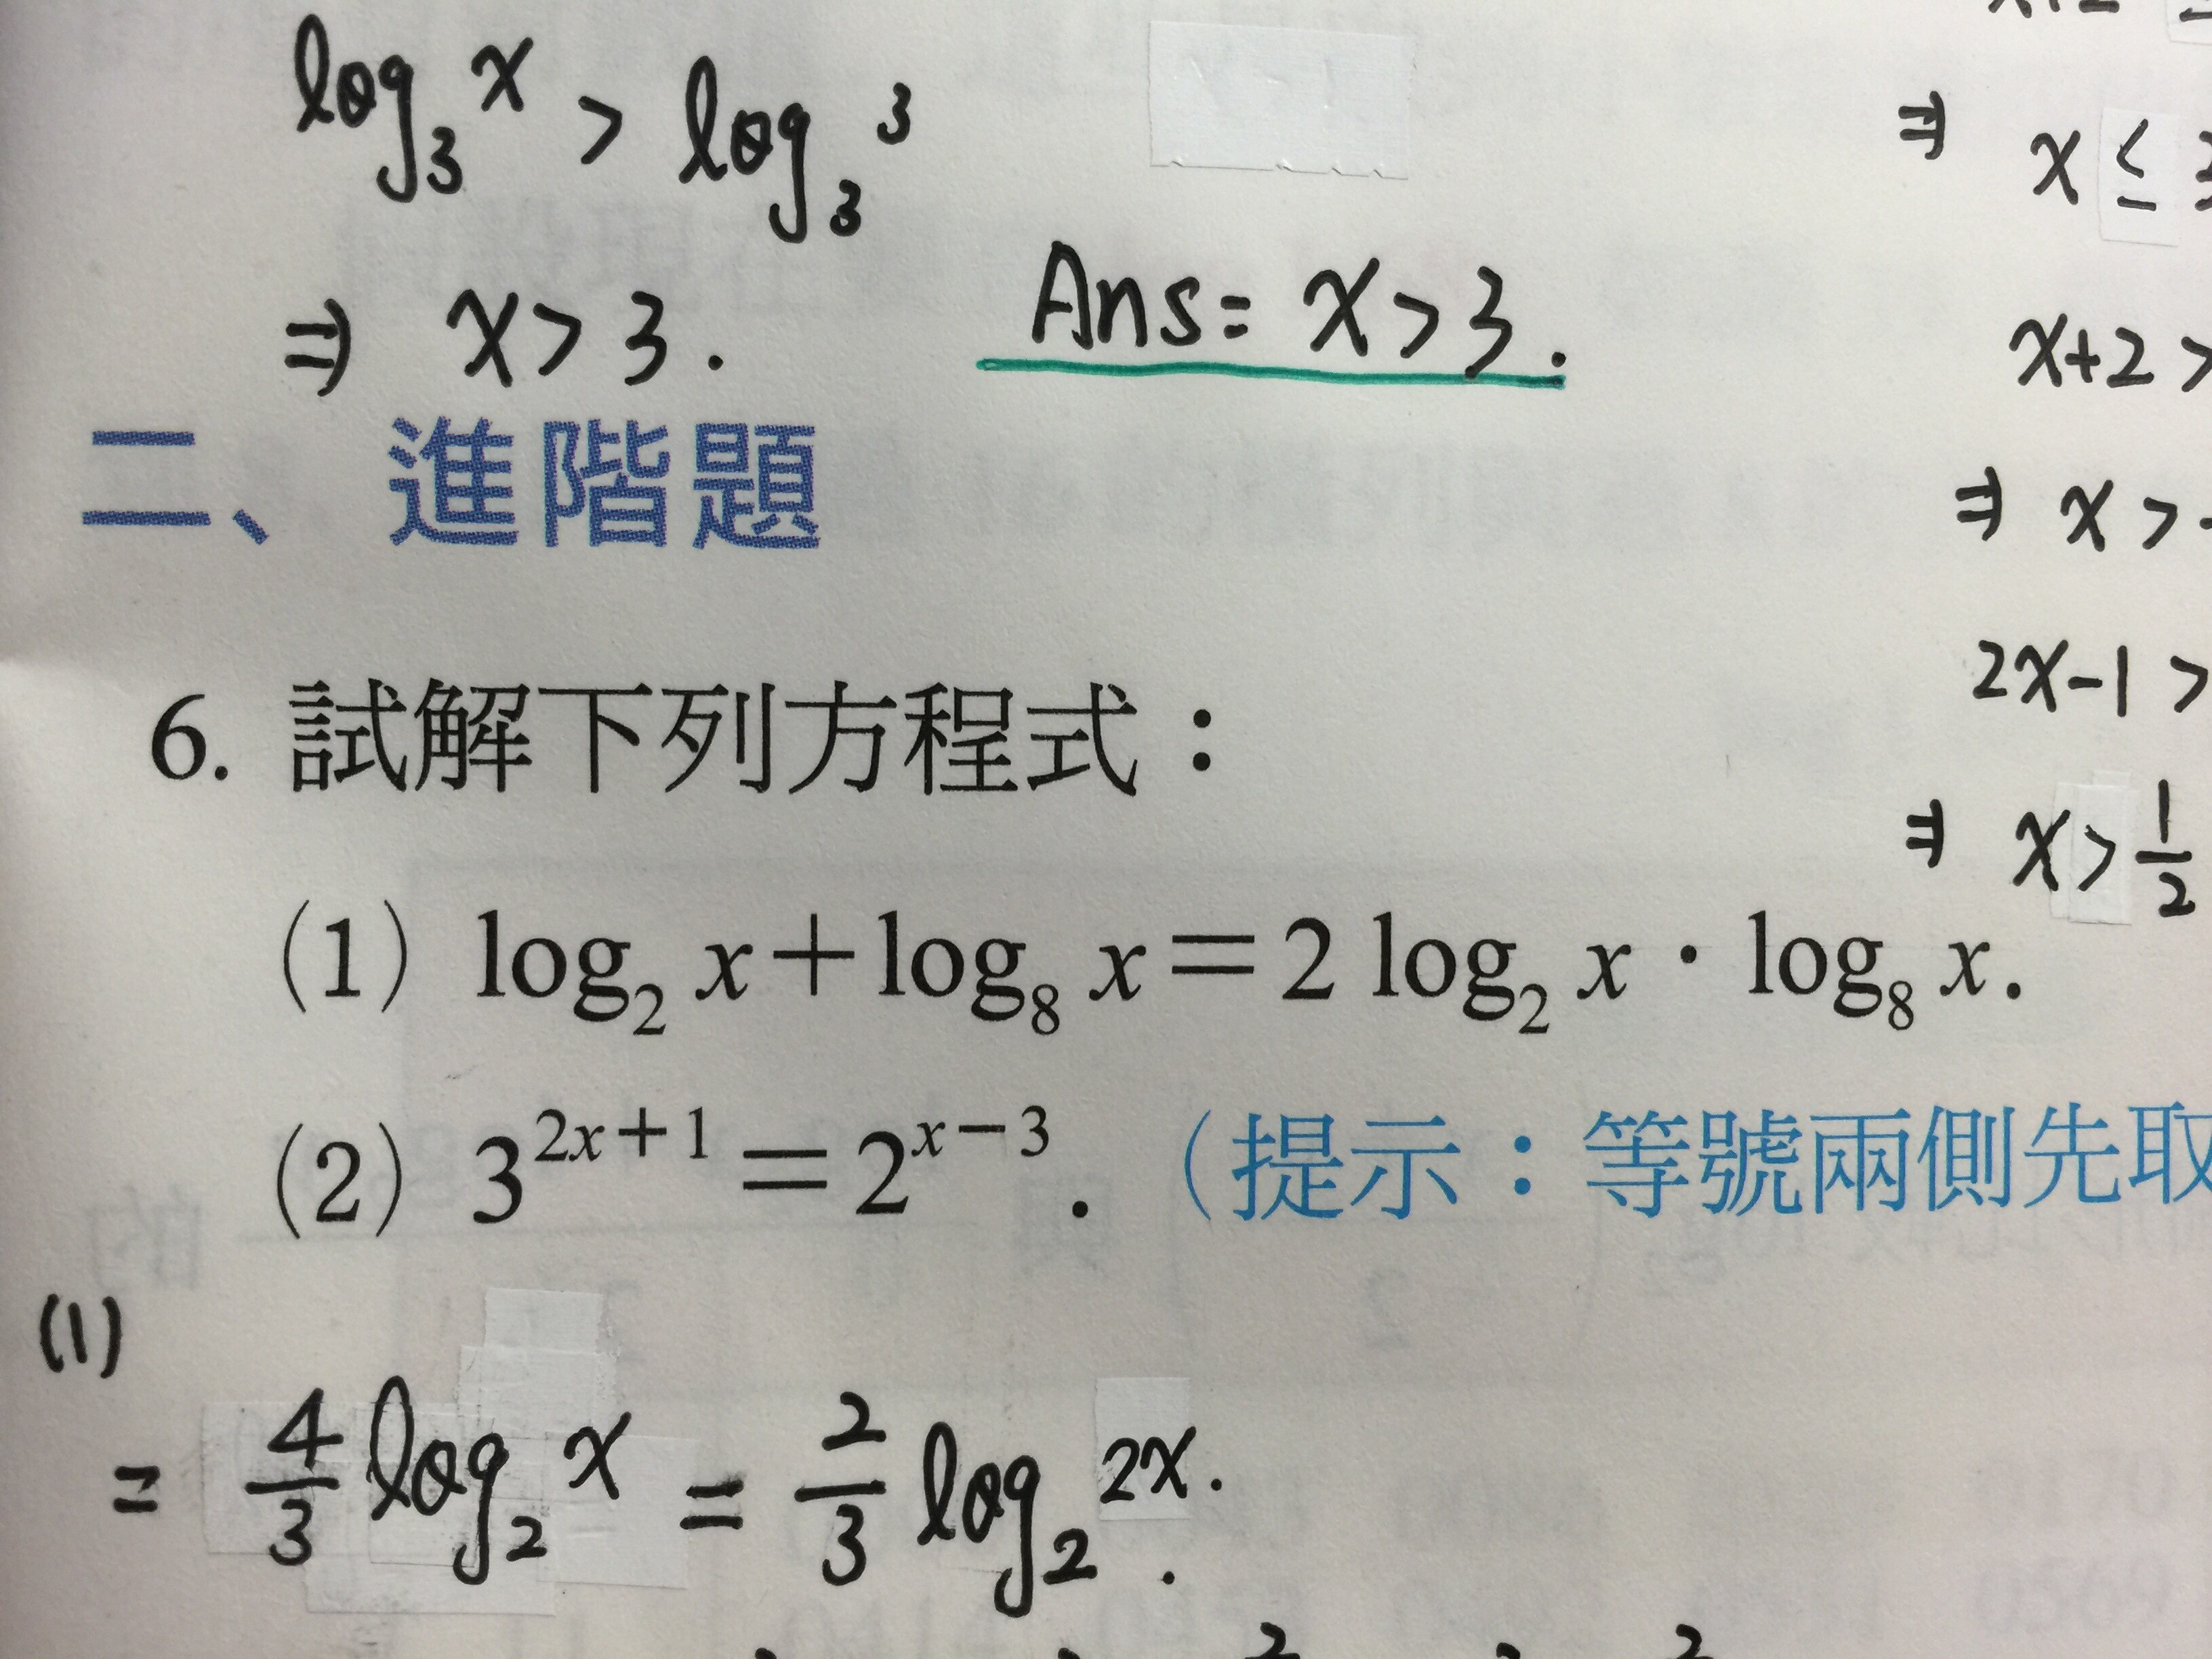 log₃ x > log₃ 3
⇒ x > 3.
Ans = x > 3.
x ≤
x+2 >
⇒ x >
2x-1 >
⇒ x > 1/2
二、進階題
6. 試解下列方程式：
(1) log₂ x + log₈ x = 2 log₂ x · log₈ x.
(2) 3^(2x+1) = 2^(x-3). (提示：等號兩側先取
(1)
= 4/3 log₂ x = 2/3 log₂ 2x.